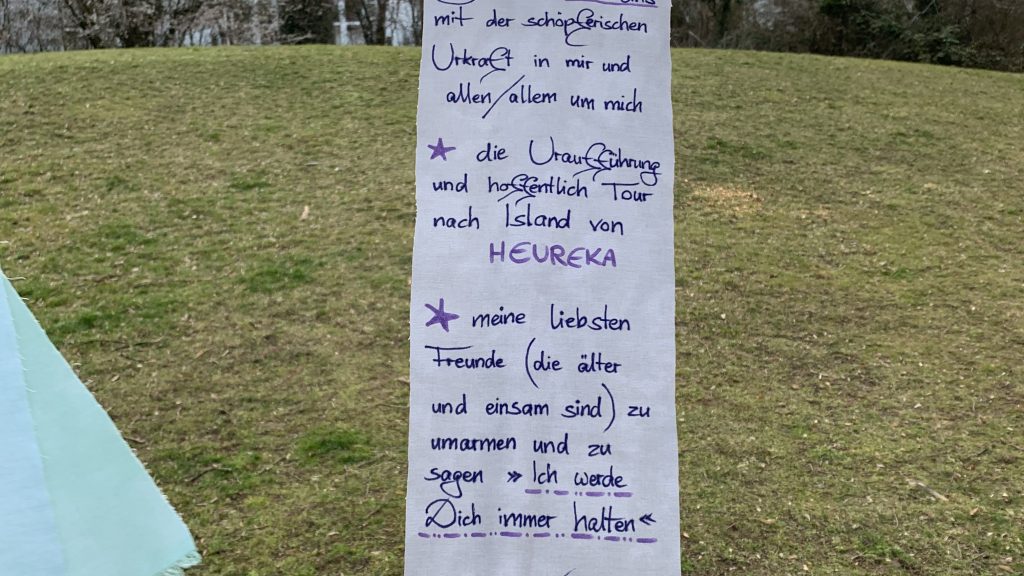 mit der schöpferischen
Urkraft in mir und
allen/allem um mich
★ die Uraufführung
und hoffentlich Tour
nach Island von
HEUREKA
★ meine liebsten
Freunde (die älter
und einsam sind) zu
umarmen und zu
sagen »Ich werde
Dich immer halten«